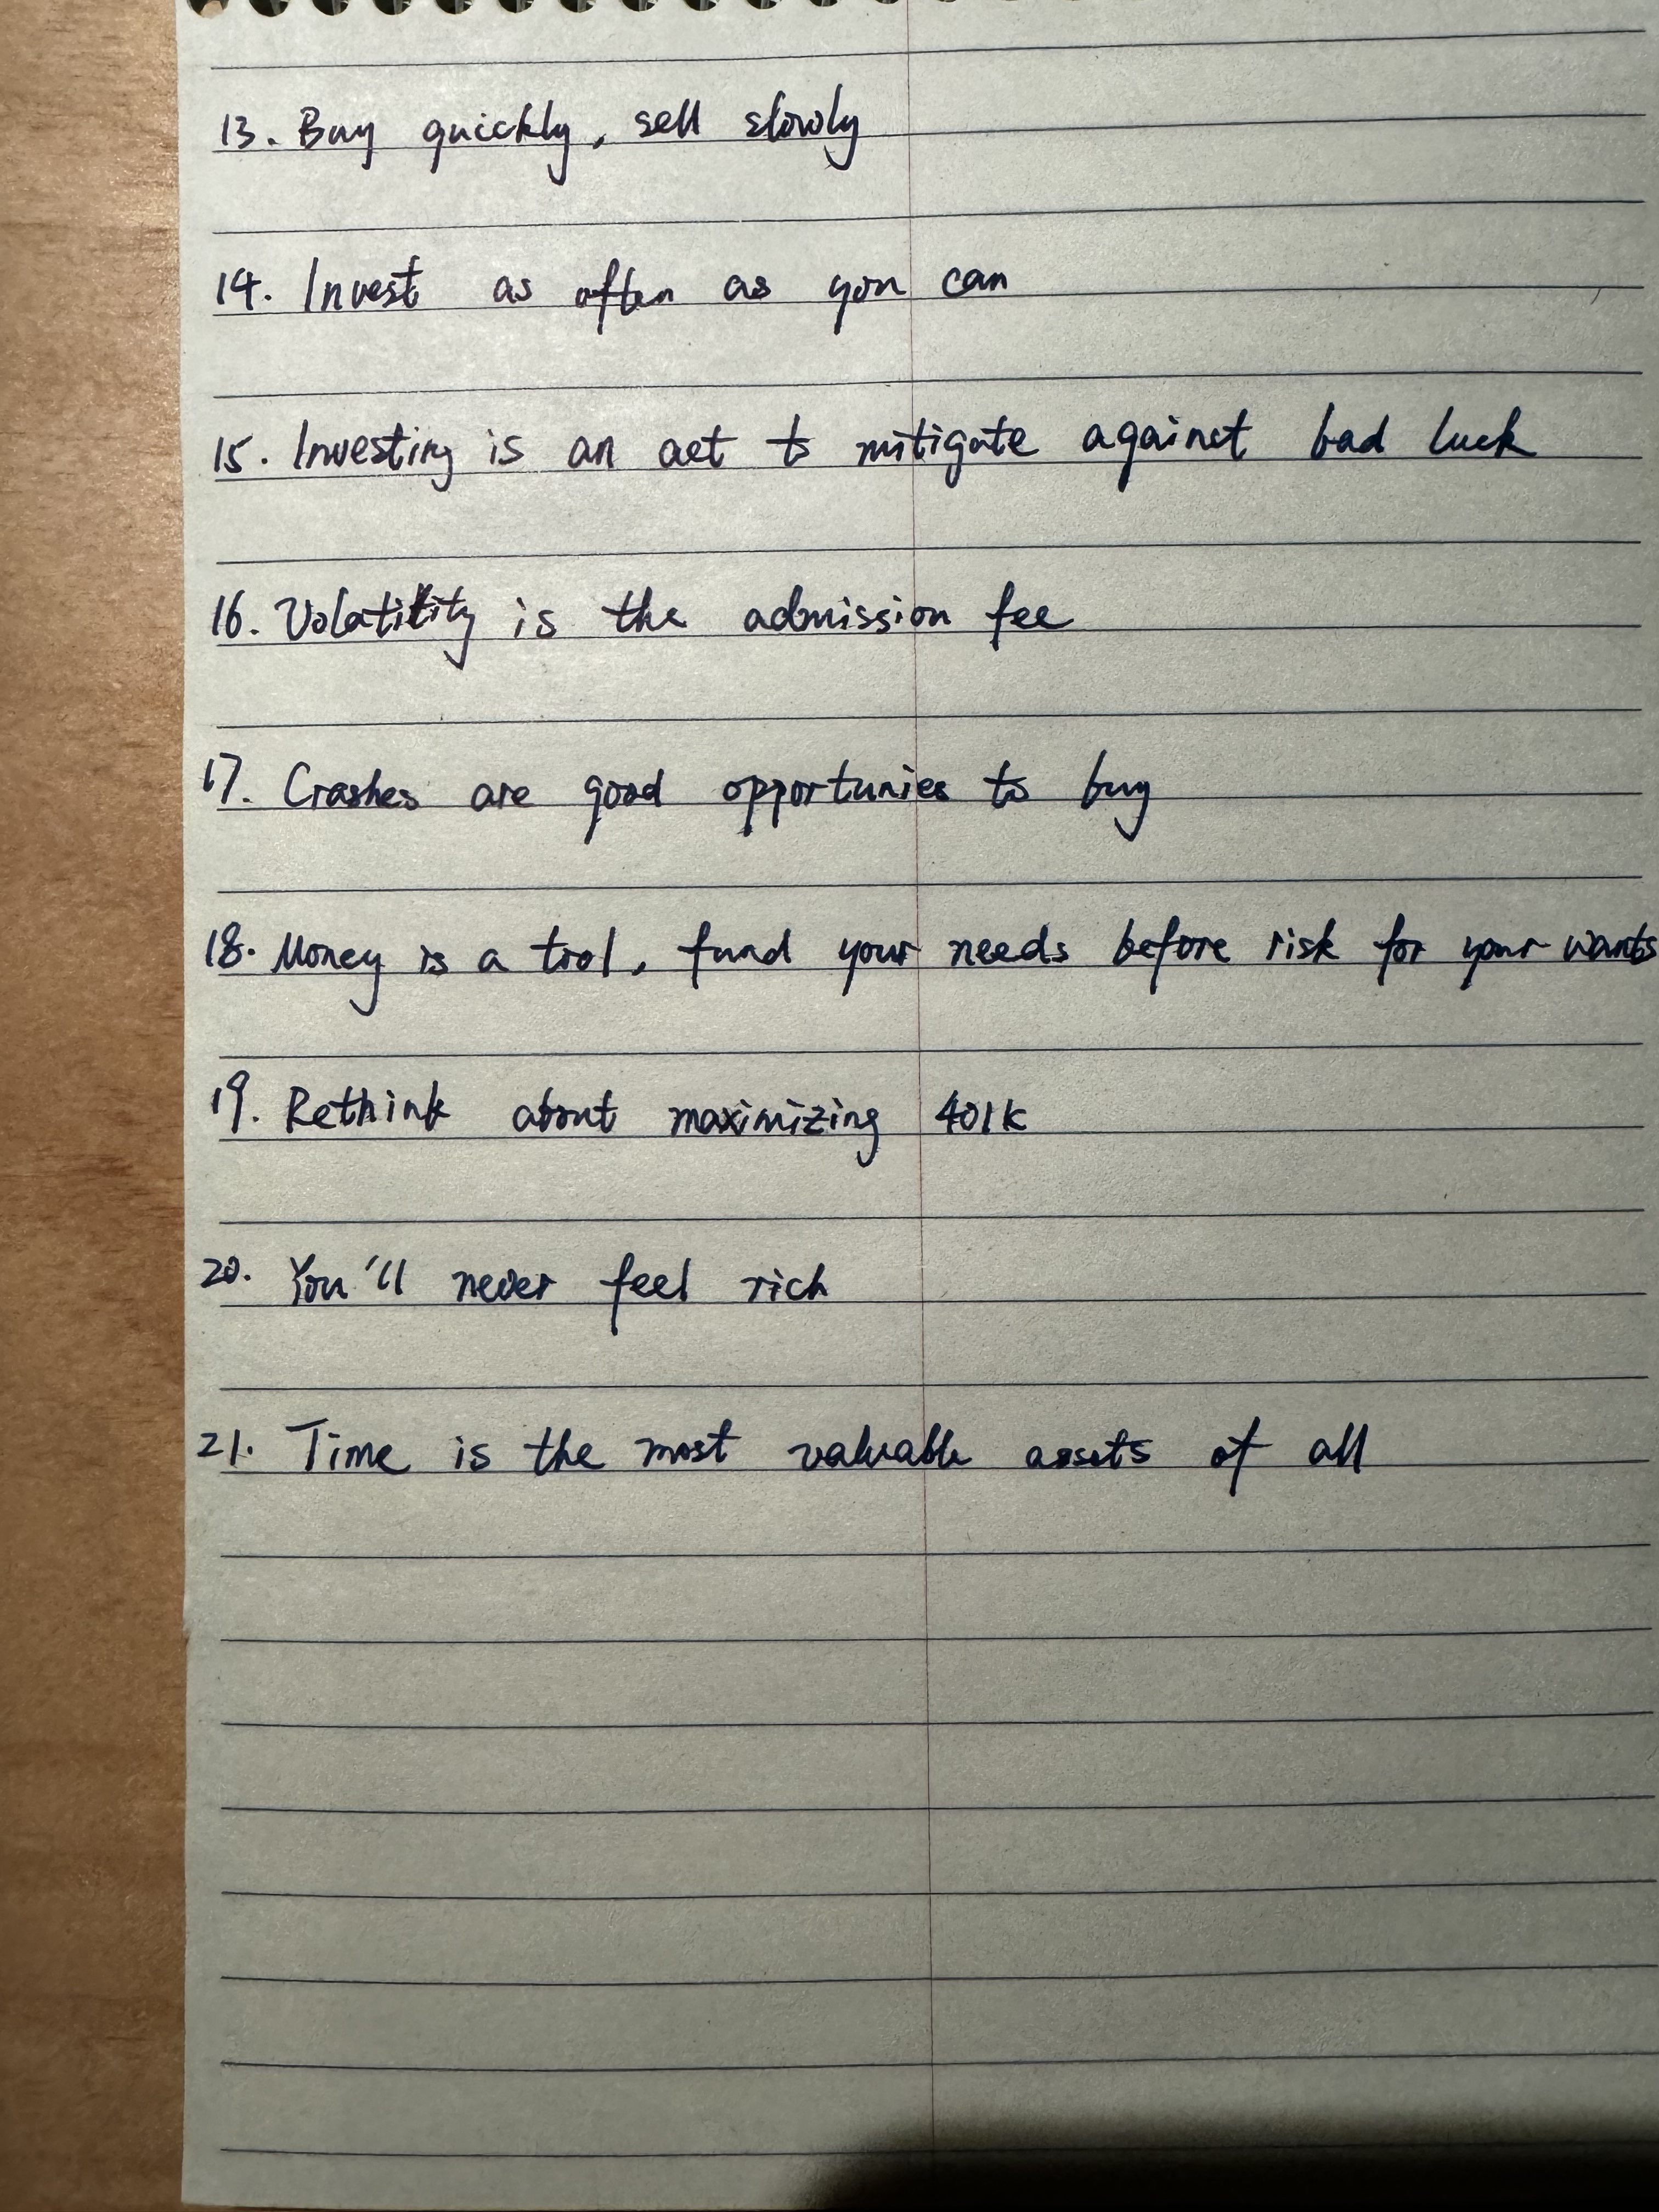 13. Buy quickly, sell slowly
14. Invest as often as you can
15. Investing is an act to mitigate against bad luck
16. Volatility is the admission fee
17. Crashes are good opportunies to buy
18. Money is a tool, fund your needs before risk for your wants
19. Rethink about maximizing 401k
20. You'll never feel rich
21. Time is the most valuable assets of all